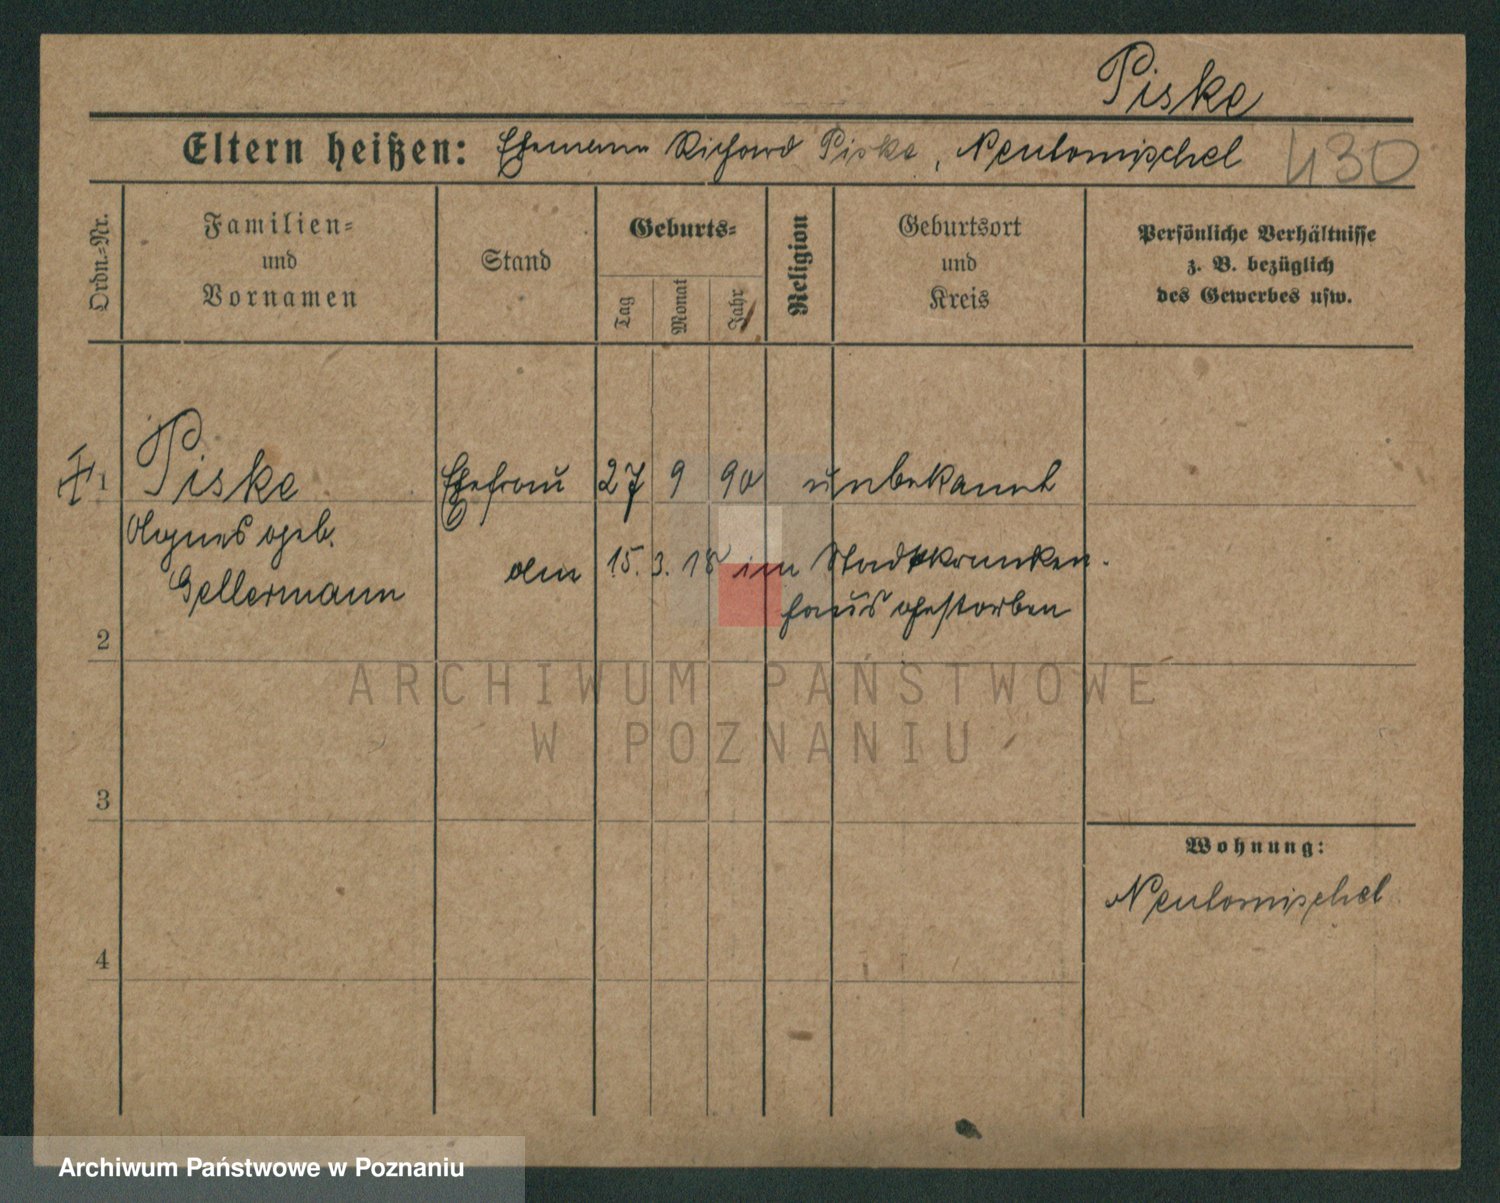 Piske
Eltern heißen: Ehemann Richard Piske, Neutomischel 430
Ordn.-Nr.
Familien-
und
Vornamen
Stand
Geburts-
Tag
Monat
Jahr
Religion
Geburtsort
und
Kreis
Persönliche Verhältnisse
z. B. bezüglich
des Gewerbes usw.
1 Piske Ehefrau 27 9 90 unbekannt
Agnes geb.
Gellermann
am 15. 3. 18 im Stadtkranken-
haus gestorben
2
ARCHIWUM PAŃSTWOWE
W POZNANIU
3
Wohnung:
Neutomischel
4
Archiwum Państwowe w Poznaniu